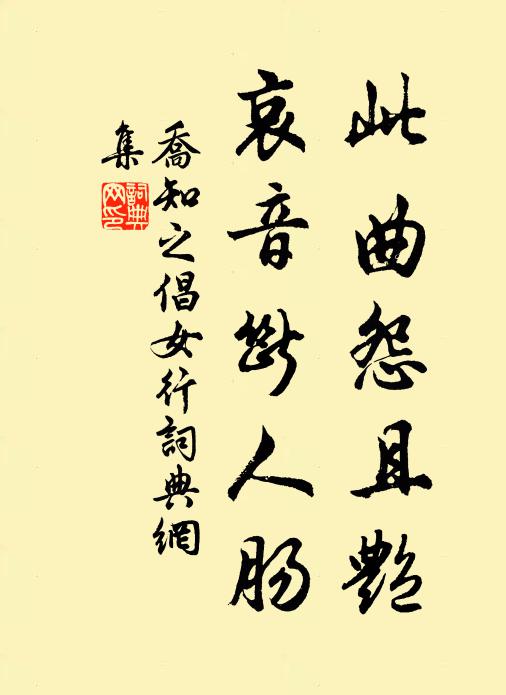 此曲怨且艷
哀音斷人肠
喬知之倡女行詞典網
集
詞典
网印